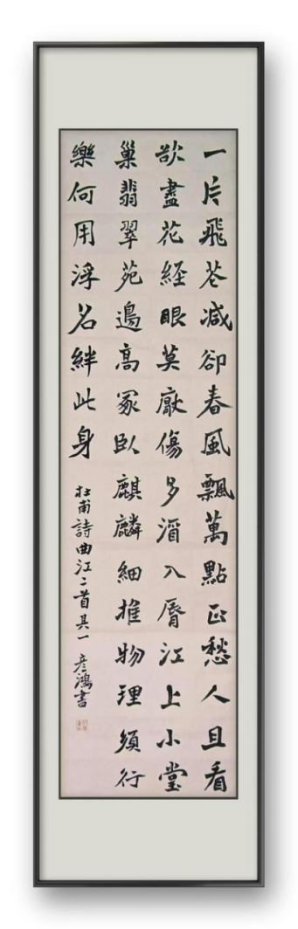 一片飛花减卻春風飄萬點正愁人且看
欲盡花経眼莫厭傷多酒入脣江上小堂
巢翡翠苑邊高冢臥麒麟細推物理須行
樂何用浮名絆此身
杜甫詩曲江二首其一 彦鴻書